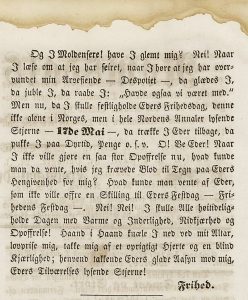 Og I Moldensere! have I glemt mig? Nei! Naar
I læse om at jeg har seiret, naar I høre at jeg har over-
vundet min Arvefiende — Despotiet —, da glædes I,
da juble I, da raabe I: „Havde ogsaa vi været med."
Men nu, da I skulle festligholde Eders Frihedsdag, denne
ikke alene i Norges, men i hele Nordens Annaler lysende
Stjerne — 17de Mai —, da trække I Eder tilbage, da
pukke I paa Dyrtid, Penge o. s. v. O! Ve Eder! Naar
I ikke ville gjøre en saa stor Opoffrelse nu, hvad kunde
man da vente, hvis jeg krævede Blod til Tegn paa Eders
Hengivenhed for mig? Hvad kunde man vente af Eder,
som ikke ville offre en Skilling til Eders Festdag — Fri-
hedens Festdag —. Nei! Nei! I skulle Alle høitidelig-
holde Dagen med Varme og Inderlighed, Nidkjærhed og
Opoffrelse! Haand i Haand knæle I ned ved mit Altar,
lovprise mig, takke mig af et oprigtigt Hjerte og en blind
Kjærlighed; henvend takkende Eders glade Aasyn mod mig,
Eders Tilværelses lysende Stjerne!
Frihed.